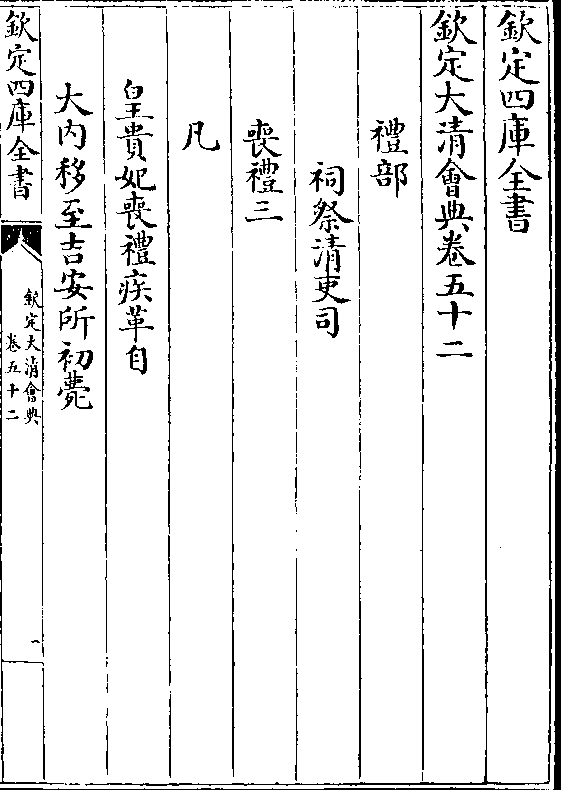 欽定四庫全書
欽定大清會典卷五十二
禮部
祠祭清吏司
喪禮三
凡
皇貴妃喪禮疾革自
大内移至吉安所初薨
欽定四庫全書
欽定大清會典
卷五十二
一